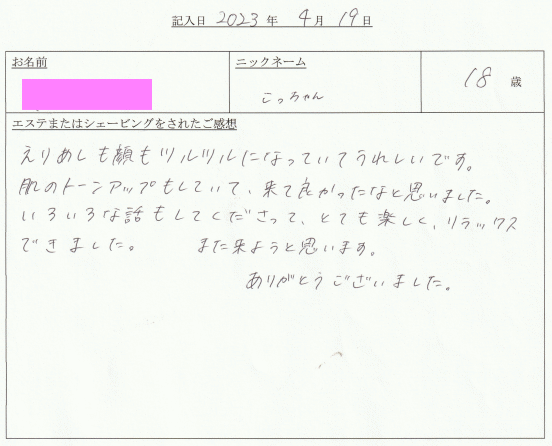 記入日 2023 年 4 月 19 日
お名前
ニックネーム
こっちゃん
18 歳
エステまたはシェービングをされたご感想
えりあしも顔もツルツルになっていてうれしいです。
肌のトーンアップもしていて、来て良かったなと思いました。
いろいろな話もしてくださって、とても楽しく、リラックス
できました。 また来ようと思います。
ありがとうございました。